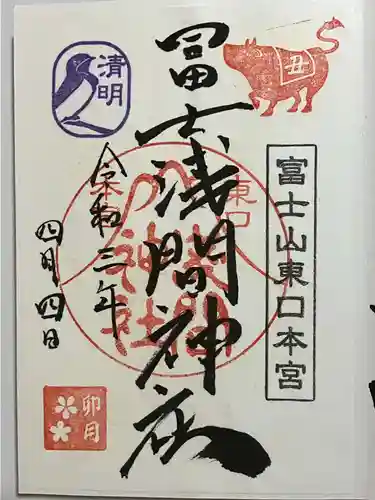 丑
富士山東口本宮
冨士浅間神社
東口
令和三年
四月四日
清明
卯月